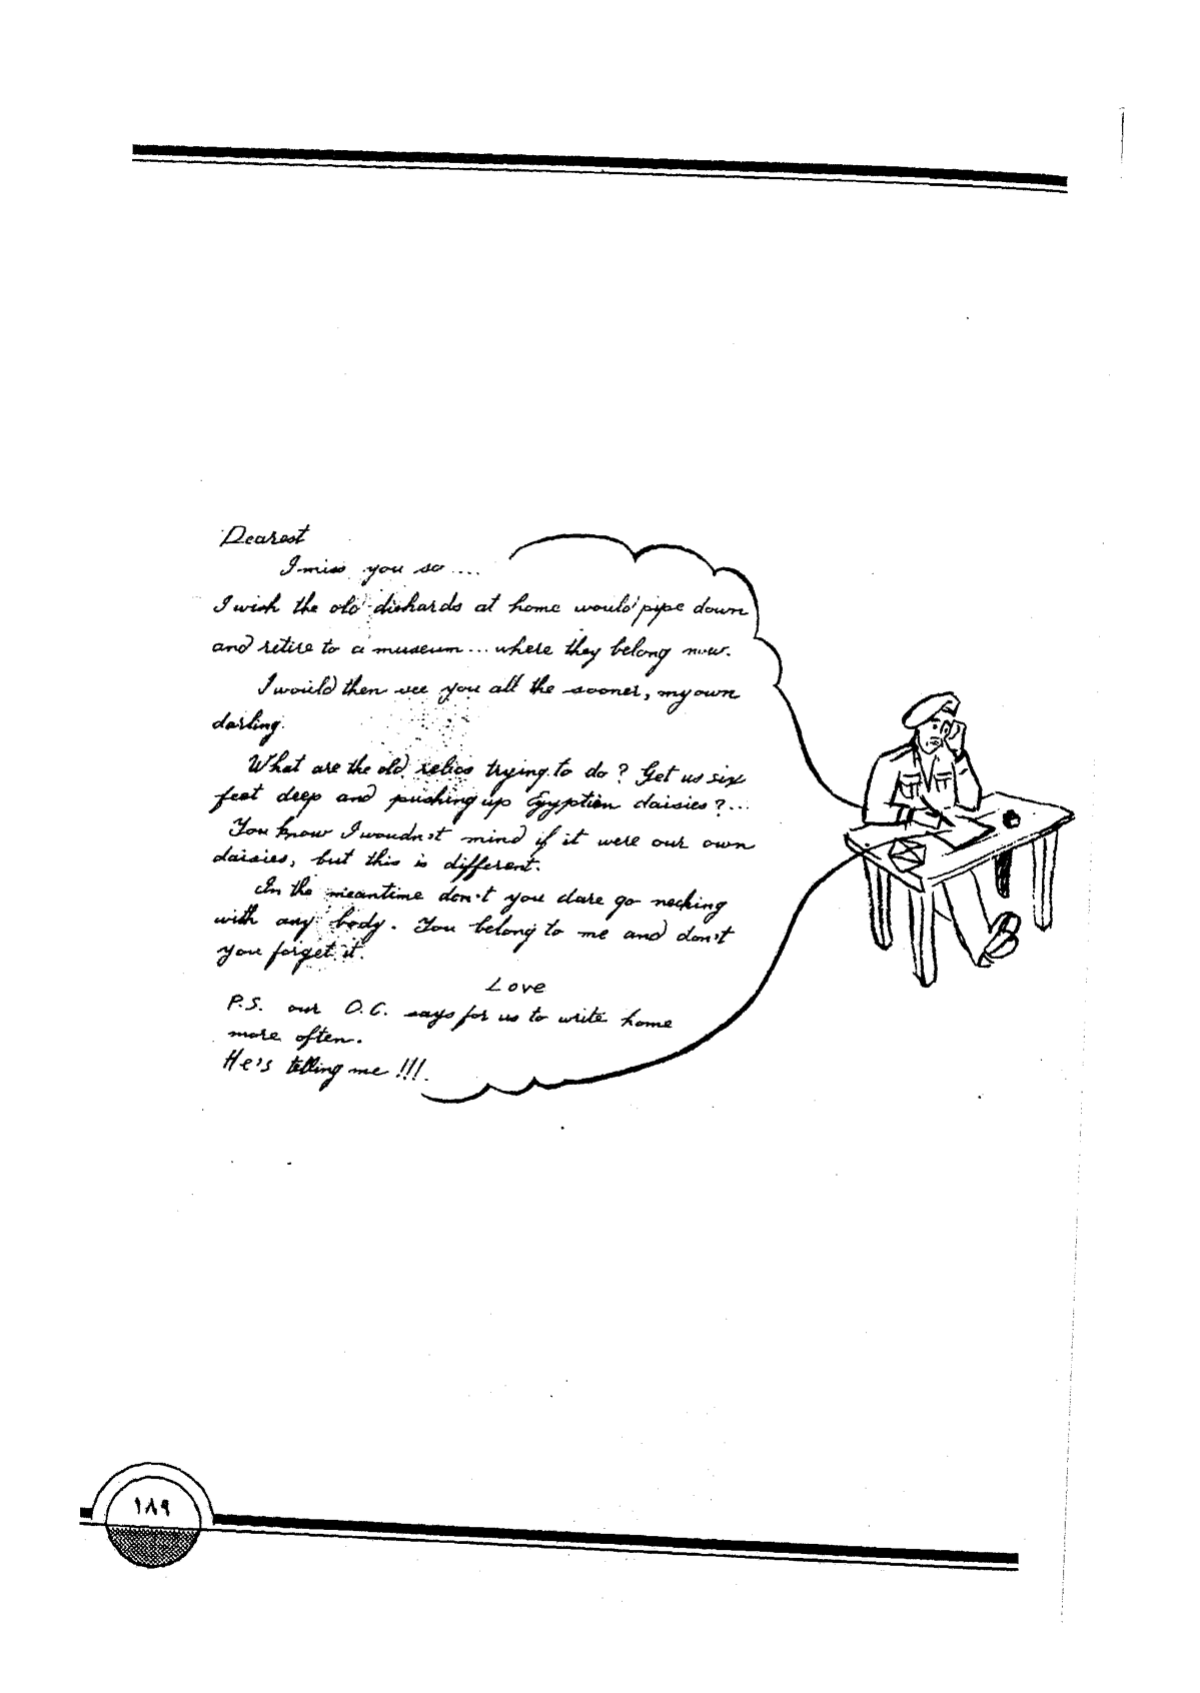 Dearest
I miss you so ....
I wish the old diehards at home would pipe down
and retire to a museum ... where they belong now.
I would then see you all the sooner, my own
darling.
What are the old relics trying to do? Get us six
feet deep and pushing up Egyptian daisies?...
You know I woudn't mind if it were our own
daisies, but this is different.
In the meantime don't you dare go necking
with any body. You belong to me and don't
you forget it.
Love
P.S. our O.C. says for us to write home
more often.
He's telling me !!!.
١٨٩